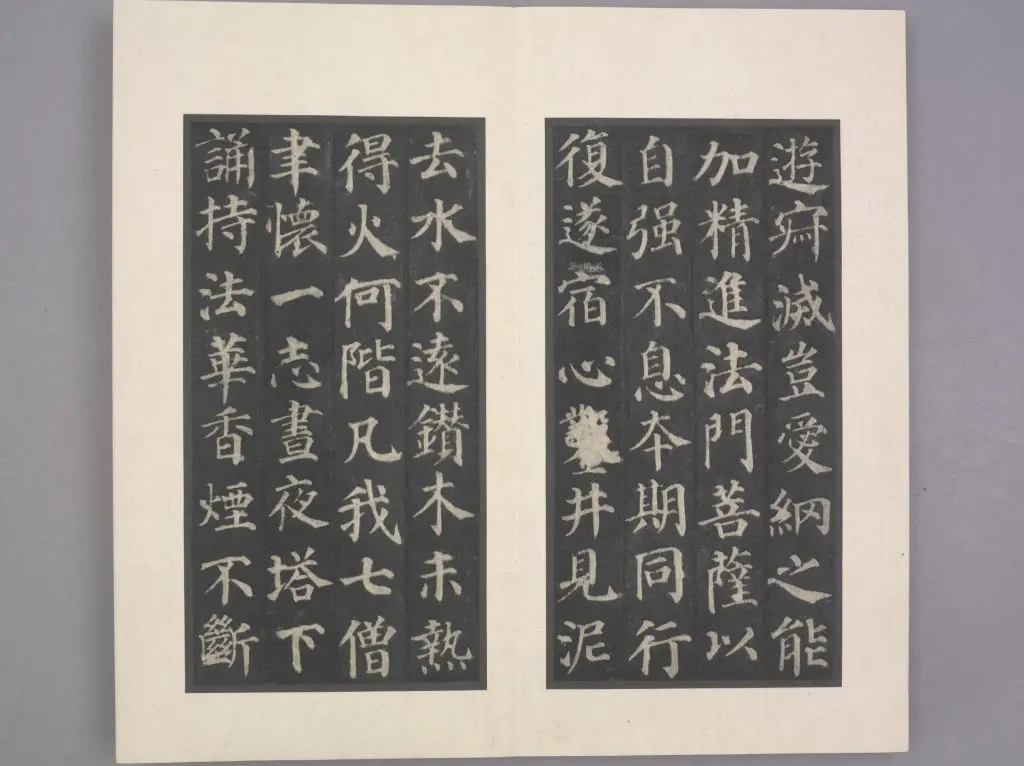 遊寂滅豈愛綱之能
加精進法門菩薩以
自强不息本期同行
復遂宿心井見泥
去水不遠鑽木未熱
得火何階凡我七僧
聿懷一志晝夜塔下
誦持法華香煙不斷